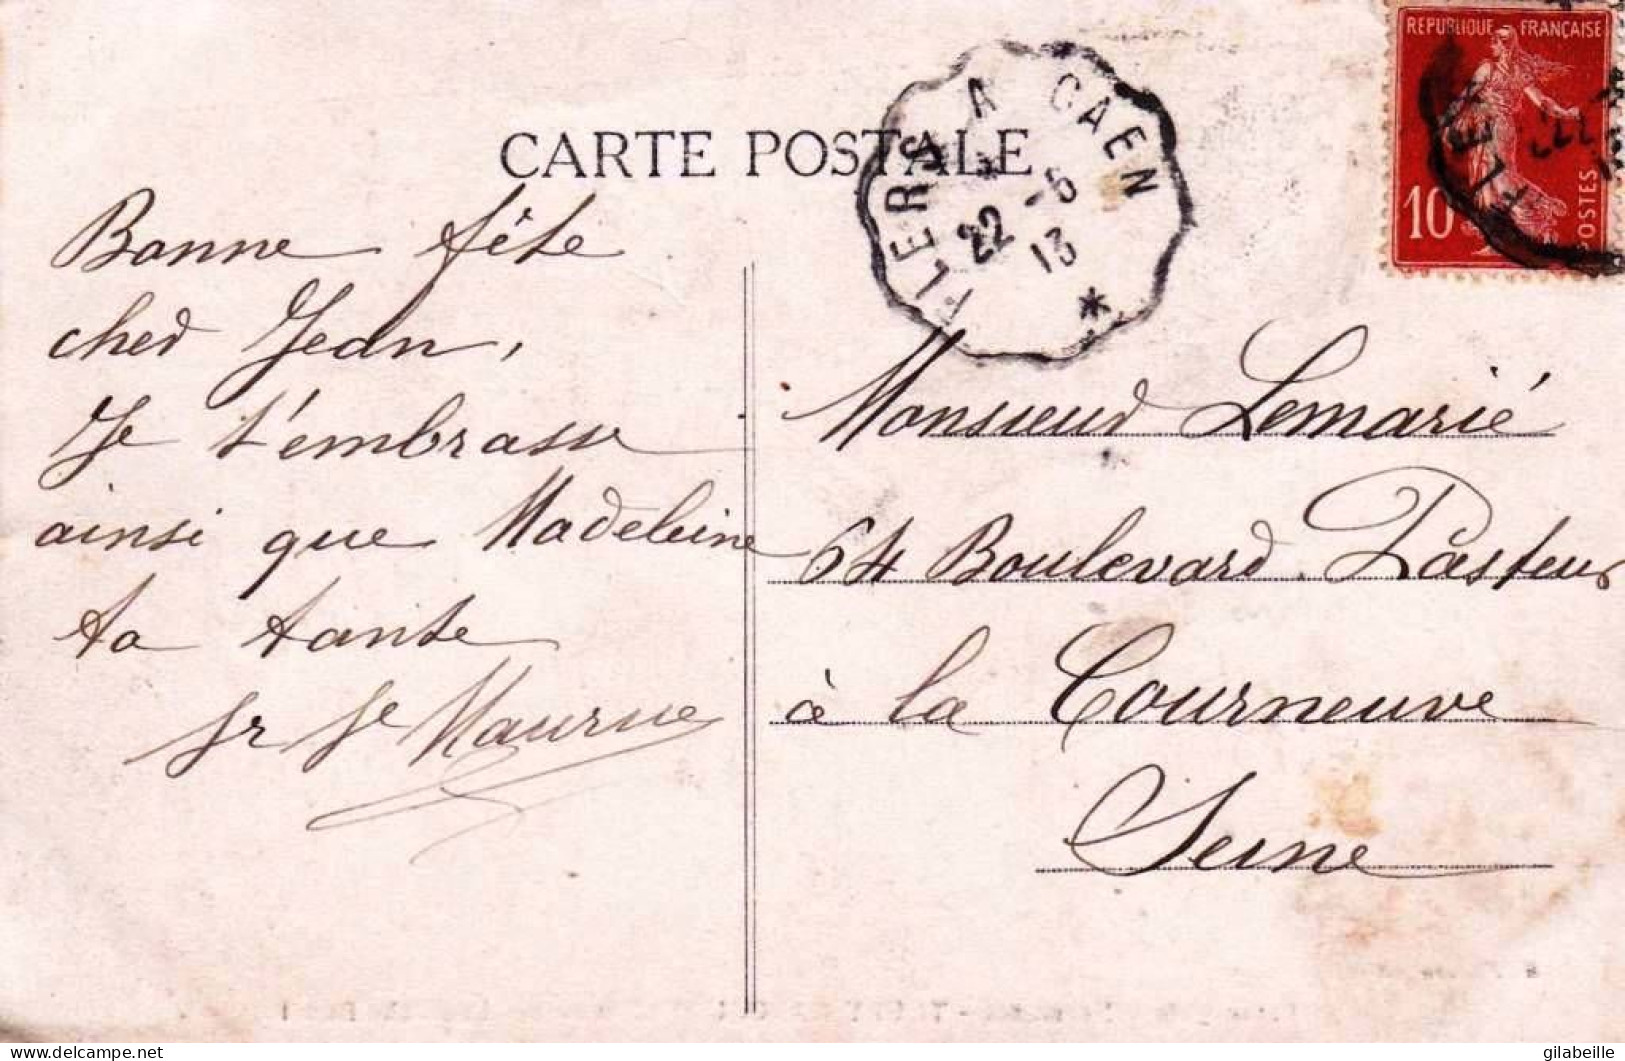 REPUBLIQUE FRANÇAISE
10
POSTES
FLERS A CAEN
22 -6
13
*
CARTE POSTALE
Bonne fête
cher Jean,
Je t'embrasse
ainsi que Madeleine
ta tante
Sr Je Maurice
Monsieur Lemarié
64 Boulevard Pasteur
à la Courneuve
Seine
delcampe.net
gilabeille